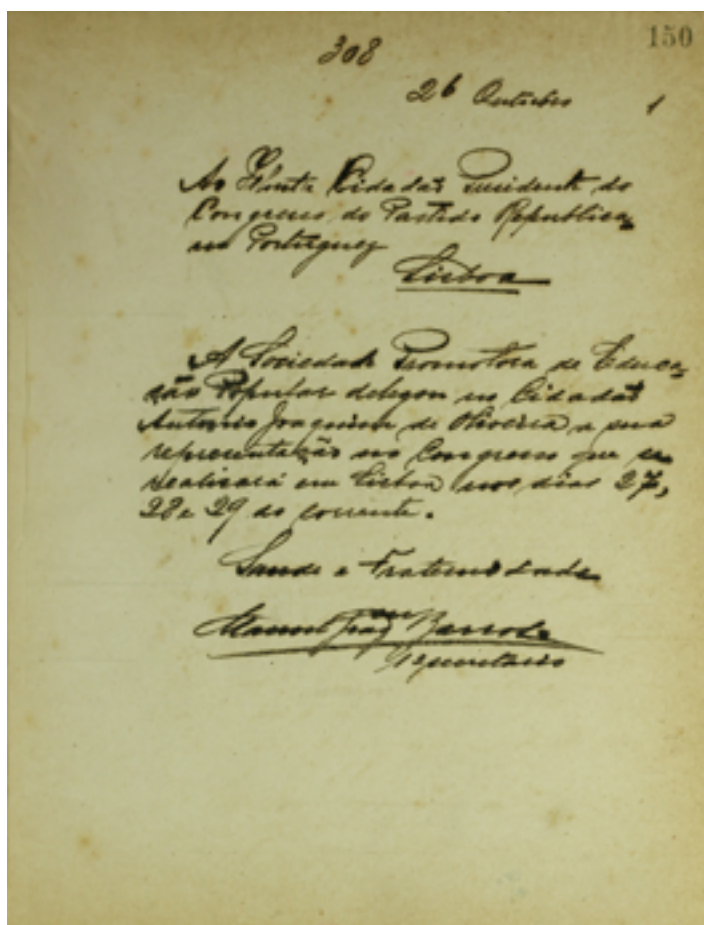 150
308
26 Outubro 1
Ao Cidadão Presidente do
Congresso do Partido Republica-
no Portuguez
Lisboa
A Sociedade Promotora de Educa-
ção Popular delegou no Cidadão
Antonio Joaquim de Oliveira a sua
representação no Congresso que se
realisará em Lisboa nos dias 27,
28 e 29 do corrente.
Saude e Fraternidade
Manuel
1º Secretario